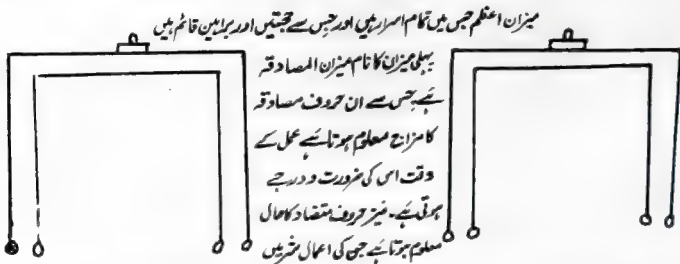 میزان اعظم جس میں تمام اسرار ہیں اور جس سے حجتیں اور براہین قائم ہیں
پہلی میزان کا نام میزان المصادقہ
ہے جس سے ان حروف مصادقہ
کا مزاج معلوم ہوتا ہے عمل کے
وقت اس کی ضرورت و درجے
ہوتی ہے۔ نیز حروف متضاد کا حال
معلوم ہوتا ہے جن کی اعمال شر میں